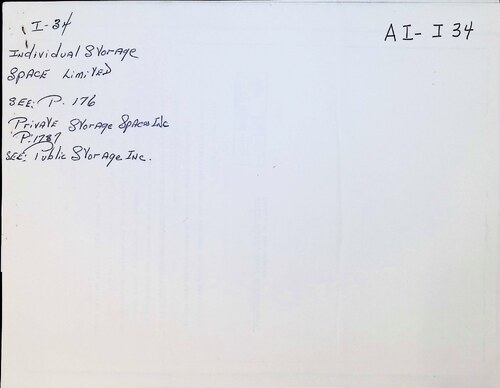 I-34
AI- I 34
Individual Storage
Space Limited
SEE: P. 176
Private Storage Spaces Inc
P.1787
SEE: Public Storage Inc.